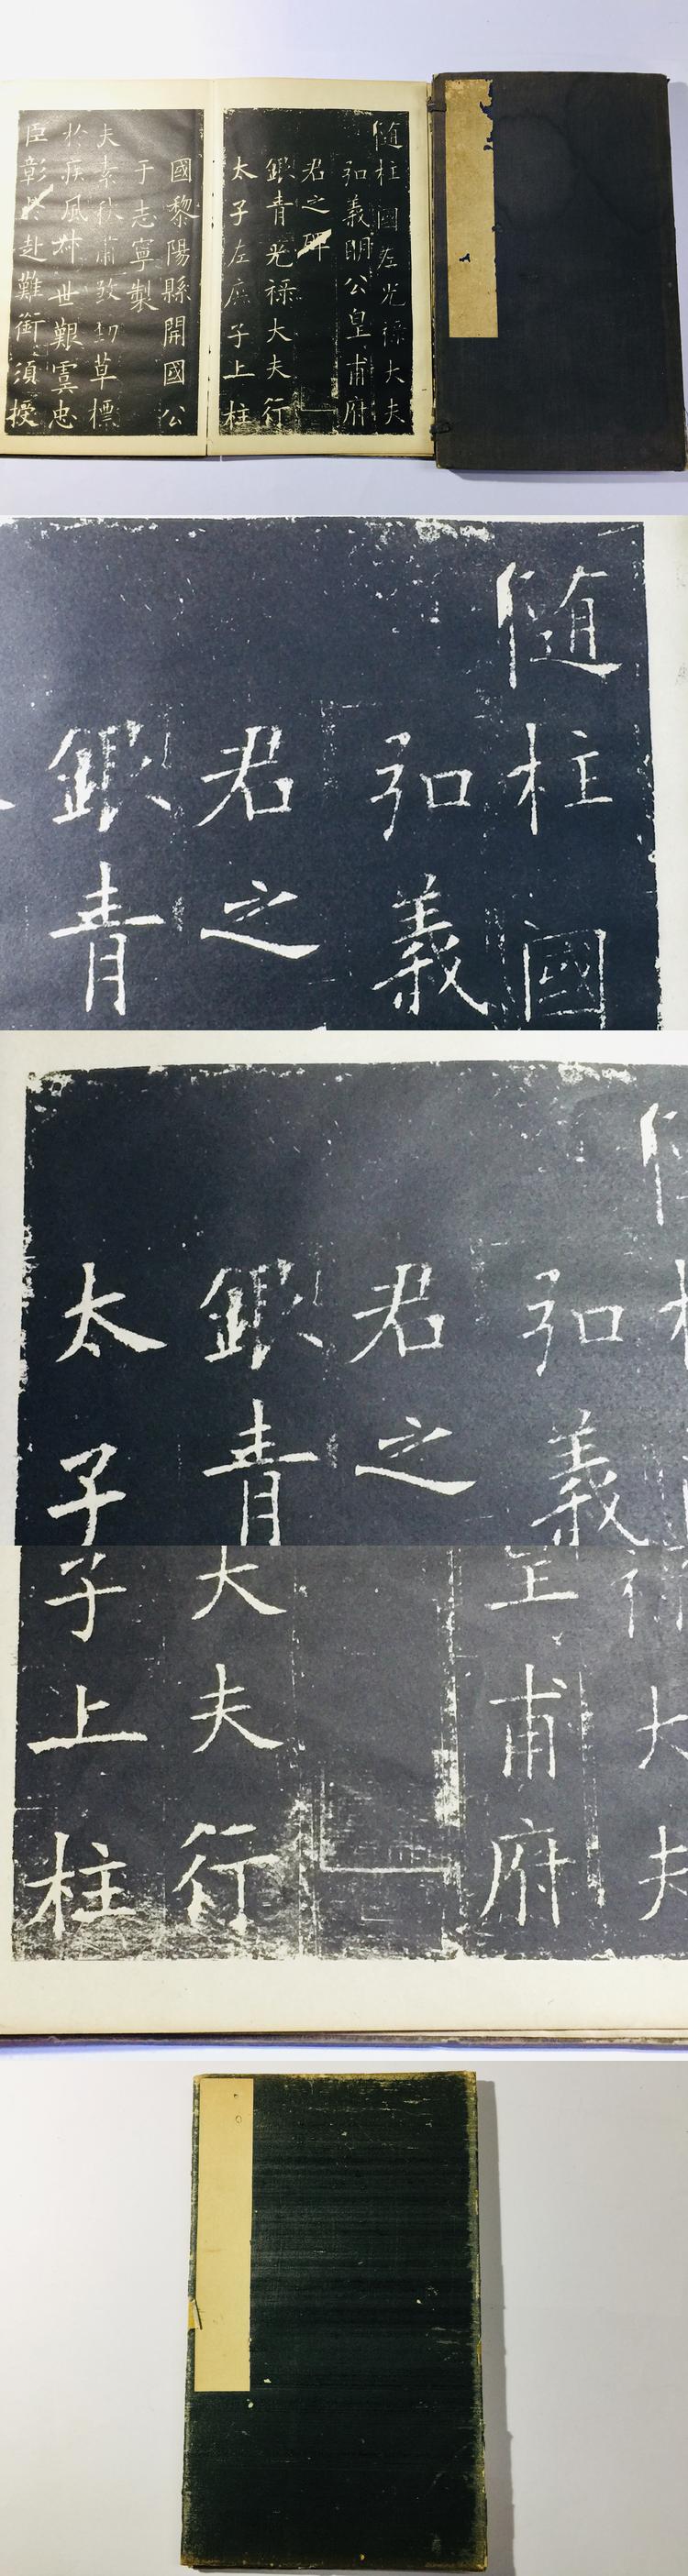 随柱國左光禄大夫
弘義明公皇甫府
君之碑
銀青光禄大夫行
太子左庶子上柱
國黎陽縣開國公
于志寧製
夫素秋肅致勁草標
於疾風叔世艱虞忠
臣彰於赴難銜須授
随柱國
弘義
君之
銀青
弘義
君之
銀青
太子
大夫
甫府
大夫行
子上柱